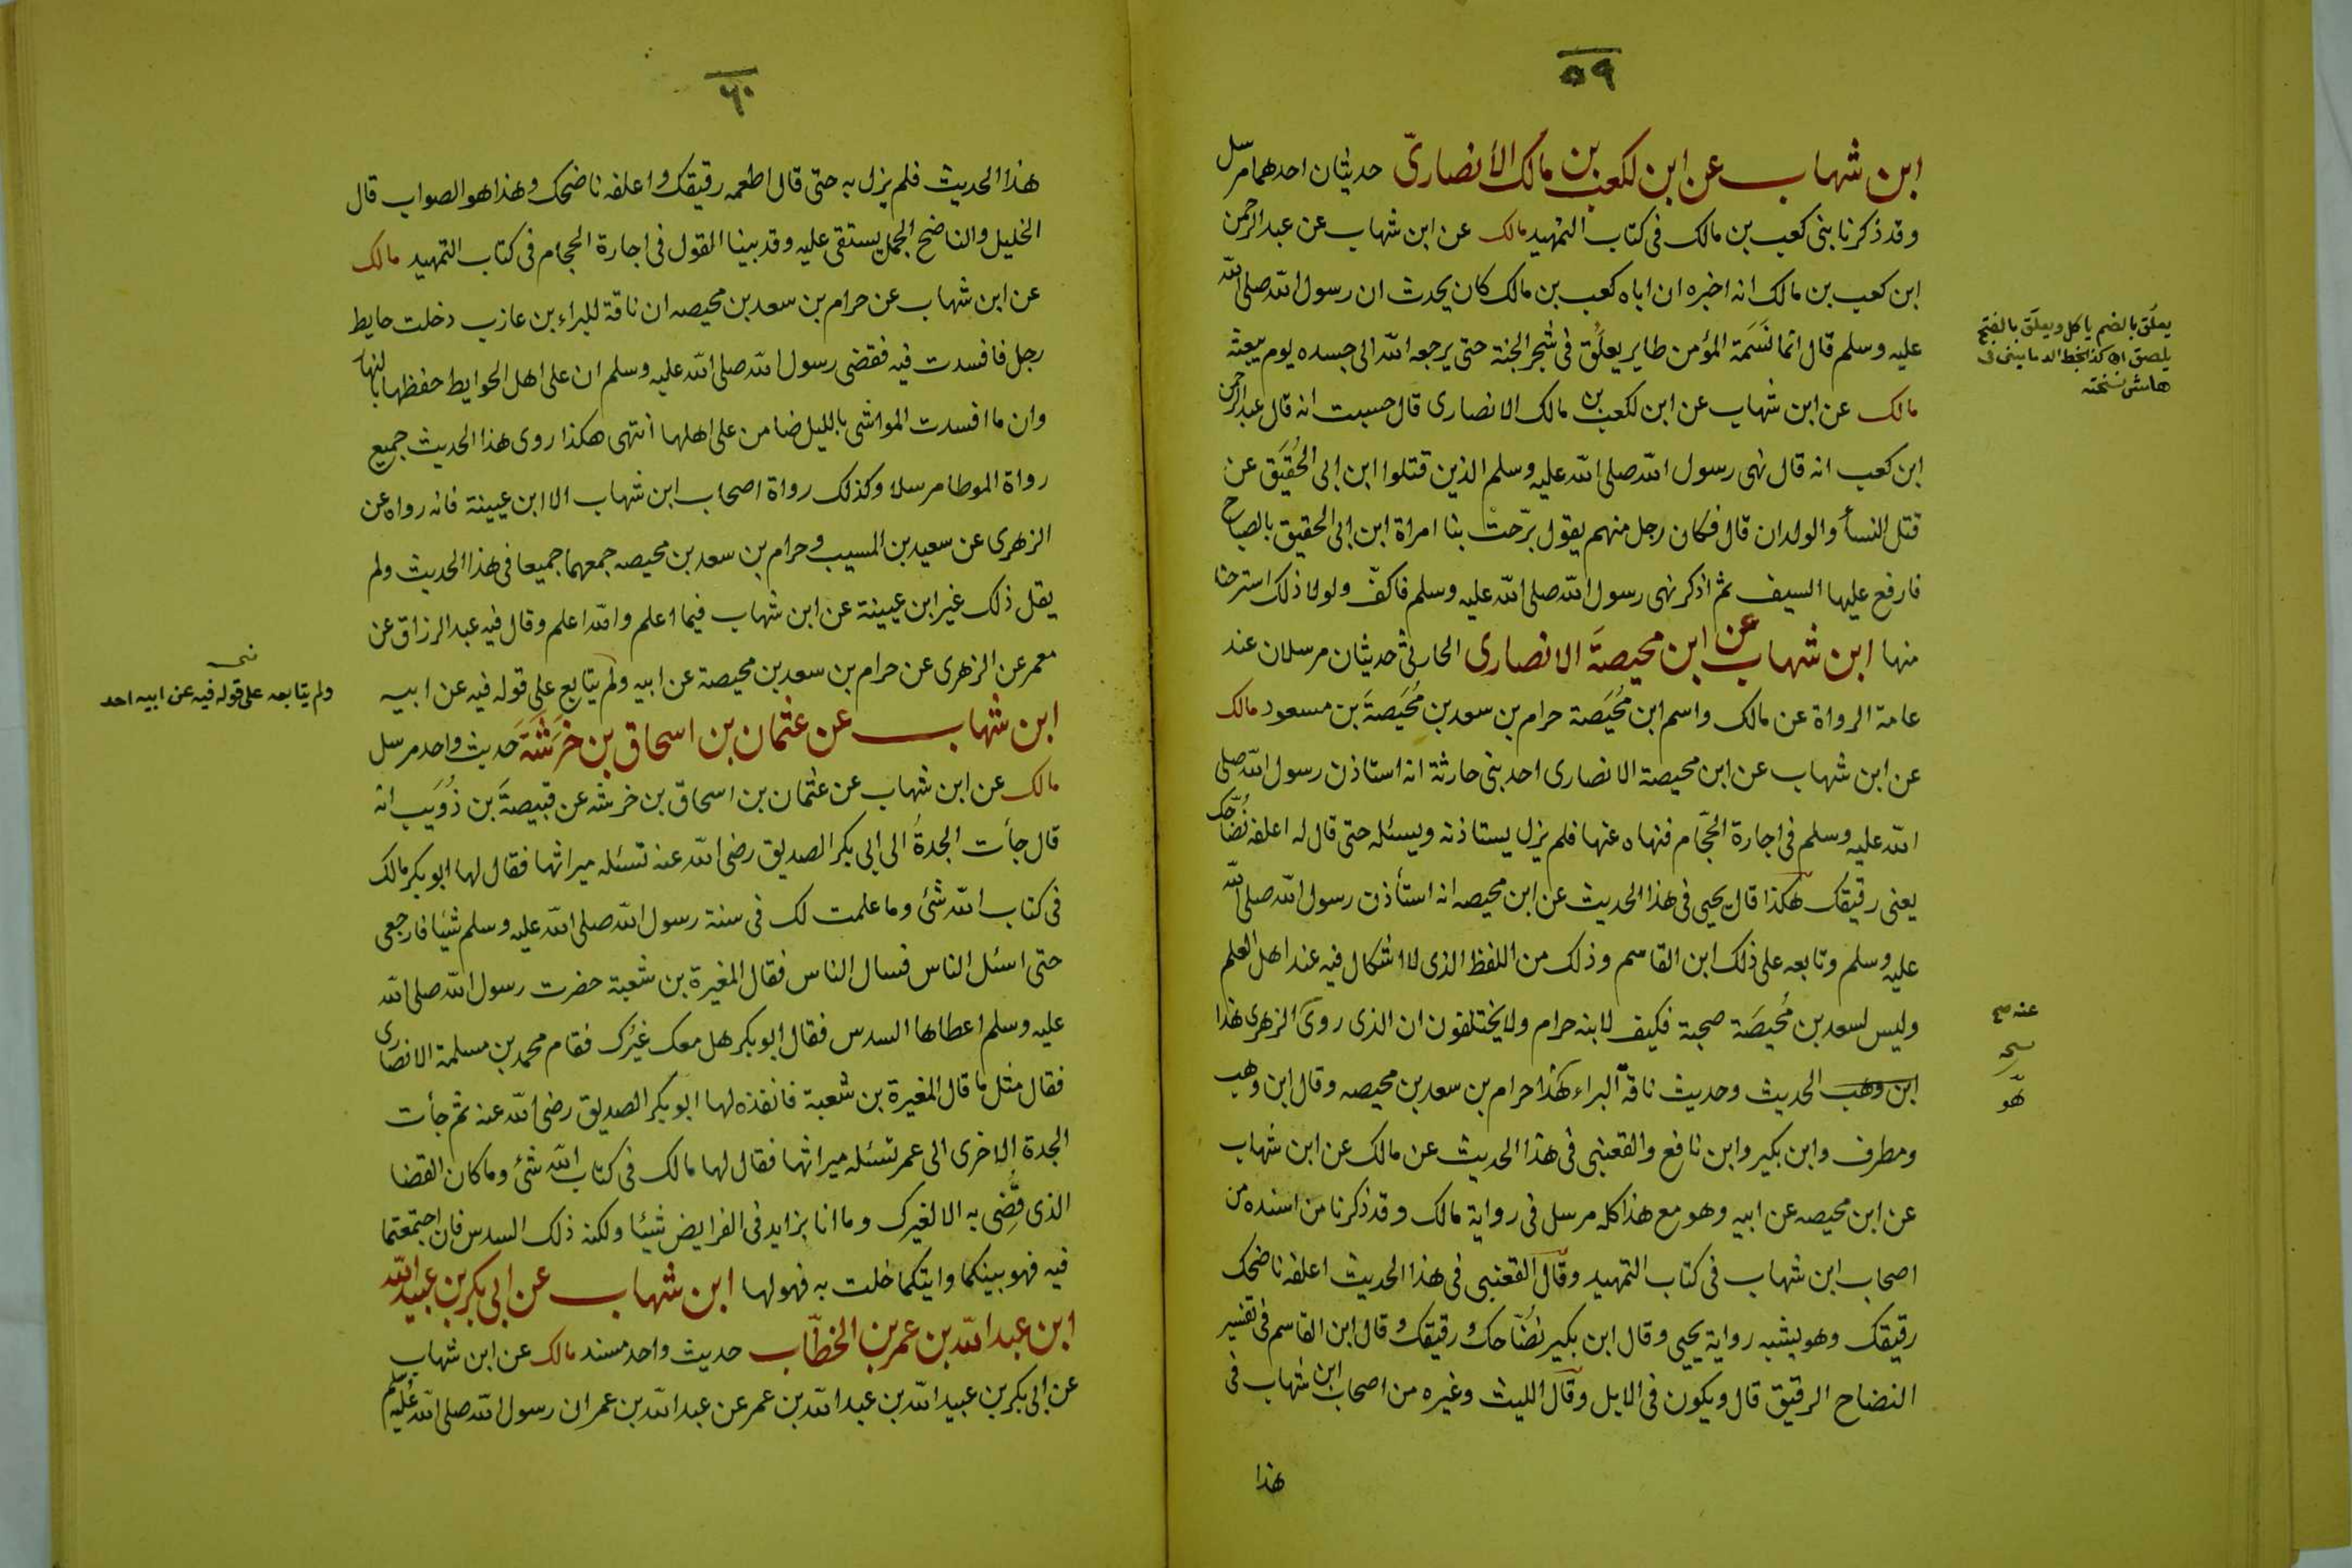 ٥٩
ابن شهاب عن ابن لكعب بن مالك الأنصارىّ حديثان احدهما مرسل
وقد ذكرنا بنى كعب بن مالك فى كتاب التمهيد مالك عن ابن شهاب عن عبد الرحمن
ابن كعب بن مالك انه اخبره ان اباه كعب بن مالك كان يحدث ان رسول الله صلى الله
عليه وسلم قال انما نَسَمَة المؤمن طاير يعلَُق فى شجر الجنة حتى يرجعه الله الى جسده يوم يبعثه
مالك عن ابن شهاب عن ابن لكعب بن مالك الانصارى قال حسبت انه قال عبد الرحمن
ابن كعب انه قال نهى رسول الله صلى الله عليه وسلم الذين قتلوا ابن ابى الحُقَيَق عن
قتل النسأ والولدان قال فكان رجل منهم يقول برّحتْ بنا امراة ابن ابى الحقيق بالصياح
فارفع عليها السيف ثم اذكر نهى رسول الله صلى الله عليه وسلم فاكفّ ولولا ذلك استرحنا
منها ابن شهاب عن ابن محيصةَ الانصارى الحارثىّ حديثان مرسلان عند
عامة الرواة عن مالك واسم ابن مُحَيَصَة حرام بن سعد بن مُحَيَصَةَ بن مسعود مالك
عن ابن شهاب عن ابن محيصة الانصارى احد بنى حارثة انه استاذن رسول الله صلى
الله عليه وسلم فى اجارة الحجّام فنهاه عنها فلم يزل يستاذنه ويسئله حتى قال له اعلفه نُضّاحك
يعنى رقيقك هكذا قال يحيى فى هذا الحديث عن ابن محيصه انه استأذن رسول الله صلى الله
عليه وسلم وتابعه على ذلك ابن القاسم وذلك من اللفظ الذى لا اشكال فيه عند اهل العلم
وليس لسعد بن مُحيصَة صحبة فكيف لابنه حرام ولا يختلفون ان الذى روى الزهرى هذا
ابن وهب الحديث وحديث ناقة البراء هذا حرام بن سعد بن محيصه وقال ابن وهب
ومطرف وابن بكير وابن نافع والقعنبى فى هذا الحديث عن مالك عن ابن شهاب
عن ابن محيصه عن ابيه وهو مع هذا كله مرسل فى رواية مالك وقد ذكرنا من اسنده من
اصحاب ابن شهاب فى كتاب التمهيد وقال القعنبى فى هذا الحديث اعلفه ناضحك
رقيقك وهو يشبه رواية يحيى وقال ابن بكير نُضّاحك ورقيقك وقال ابن القاسم فى تفسير
النضاح الرقيق قال ويكون فى الابل وقال الليث وغيره من اصحاب ابن شهاب فى
هذا
يعلُق بالضم ياكل ويعلَق بالفتح
يلصق
هامش نسخته
عنه صح
هو
٦٠
هذا الحديث فلم يزل به حتى قال اطعمه رقيقك واعلفه ناضحك وهذا هو الصواب قال
الخليل والناضح الجمل يستقى عليه وقد بينا القول فى اجارة الحجام فى كتاب التمهيد مالك
عن ابن شهاب عن حرام بن سعد بن محيصه ان ناقة للبراء بن عازب دخلت حايط
رجل فافسدت فيه فقضى رسول الله صلى الله عليه وسلم ان على اهل الحوايط حفظها بالنهار
وان ما افسدت المواشى بالليل ضامن على اهلها انتهى هكذا روى هذا الحديث جميع
رواة الموطا مرسلا وكذلك رواة اصحاب ابن شهاب الا ابن عيينة فانه رواه عن
الزهرى عن سعيد بن المسيب وحرام بن سعد بن محيصه جمعهما جميعا فى هذا الحديث ولم
يقل ذلك غير ابن عيينة عن ابن شهاب فيما اعلم والله اعلم وقال فيه عبد الرزاق عن
معمر عن الزهرى عن حرام بن سعد بن محيصة عن ابيه ولم يتابع على قوله فيه عن ابيه
ابن شهاب عن عثمان بن اسحاق بن خَرَشَةَ حديث واحد مرسل
مالك عن ابن شهاب عن عثمان بن اسحاق بن خرشه عن قبيصةَ بن ذُوَيَب انه
قال جأت الجدةُ الى ابى بكر الصديق رضى الله عنه تسئله ميراثها فقال لها ابو بكر مالك
فى كتاب الله شئ وما علمت لك فى سنة رسول الله صلى الله عليه وسلم شيئا فارجعى
حتى اسئل الناس فسال الناس فقال المغيرة بن شعبة حضرت رسول الله صلى الله
عليه وسلم اعطاها السدس فقال ابو بكر هل معك غيُرك فقام محمد بن مسلمة الانصارى
فقال مثل ما قال المغيرة بن شعبة فانفذه لها ابو بكر الصديق رضى الله عنه ثم جأت
الجدة الاخرى الى عمر تسئله ميراثها فقال لها مالك فى كتاب الله شئ وما كان القضا
الذى قُضِى به الا لغيرك وما انا بزايد فى الفرايض شيئا ولكنه ذلك السدس فان اجتمعتما
فيه فهو بينكما وايتكما خلت به فهو لها ابن شهاب عن ابى بكر بن عبيد الله
ابن عبد الله بن عمر بن الخطّاب حديث واحد مسند مالك عن ابن شهاب
عن ابى بكر بن عبيد الله بن عبد الله بن عمر عن عبد الله بن عمر ان رسول الله صلى الله عليه وسلم
ولم يتابعه على قوله فيه عن ابيه احد